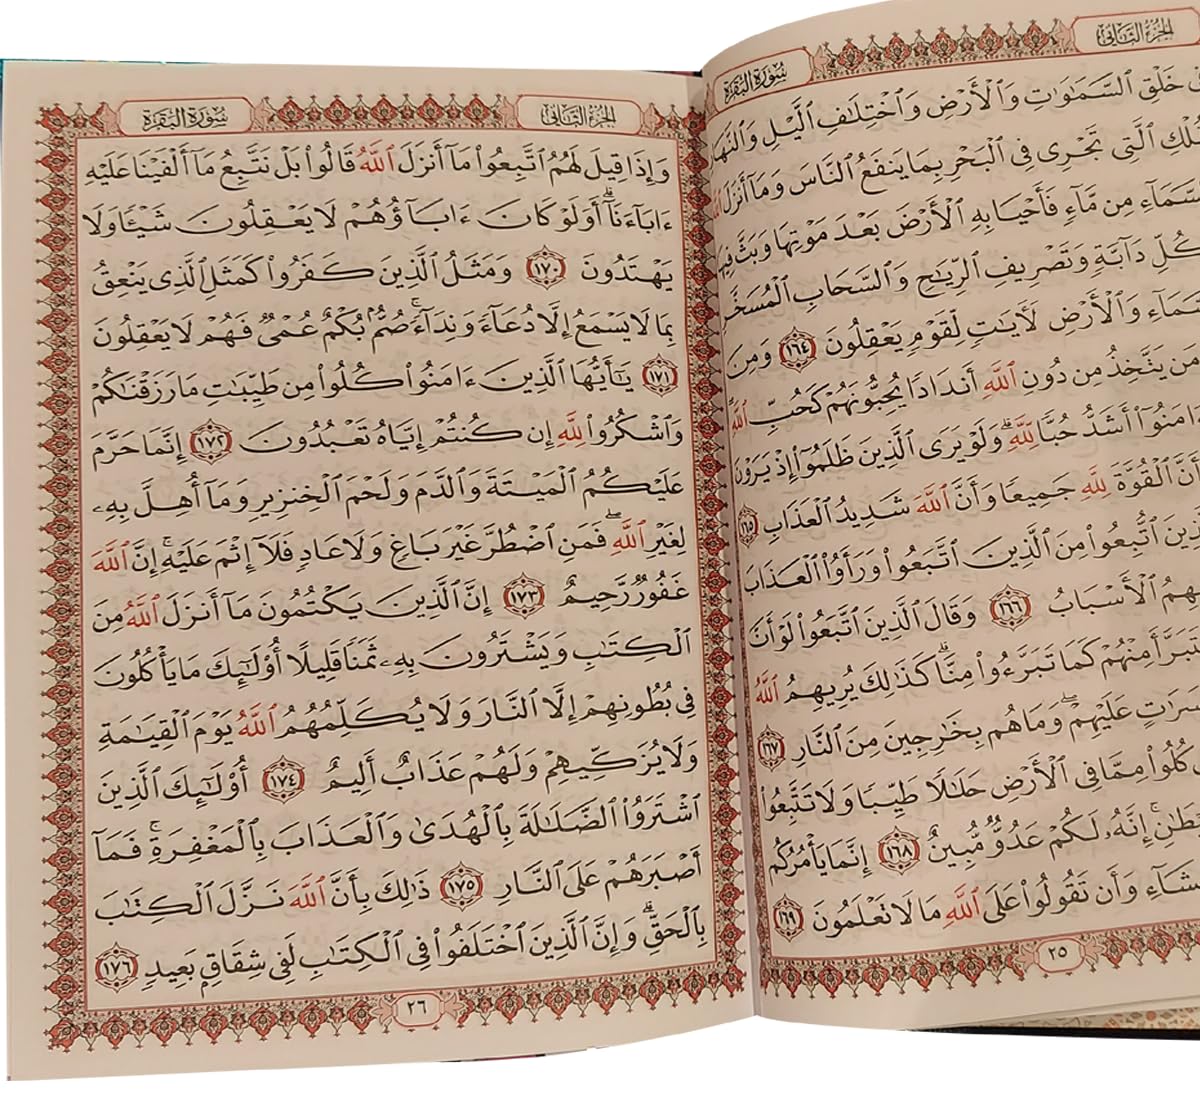 سُورَةُ البَقَرَةِ الجُزْءُ الثَّانِي
خَلْقِ ٱلسَّمَٰوَٰتِ وَٱلْأَرْضِ وَٱخْتِلَٰفِ ٱلَّيْلِ وَٱلنَّهَا
ٱلَّتِي تَجْرِي فِي ٱلْبَحْرِ بِمَا يَنفَعُ ٱلنَّاسَ وَمَآ أَنزَلَ ٱللَّهُ
سَّمَآءِ مِن مَّآءٍ فَأَحْيَا بِهِ ٱلْأَرْضَ بَعْدَ مَوْتِهَا وَبَثَّ فِيهَا
كُلِّ دَآبَّةٍ وَتَصْرِيفِ ٱلرِّيَٰحِ وَٱلسَّحَابِ ٱلْمُسَخَّرِ
سَّمَآءِ وَٱلْأَرْضِ لَأٓيَٰتٍ لِّقَوْمٍ يَعْقِلُونَ ١٦٤ وَمِنَ
مَن يَتَّخِذُ مِن دُونِ ٱللَّهِ أَندَادًا يُحِبُّونَهُمْ كَحُبِّ ٱللَّهِ
ءَامَنُوٓا۟ أَشَدُّ حُبًّا لِّلَّهِ ۗ وَلَوْ يَرَى ٱلَّذِينَ ظَلَمُوٓا۟ إِذْ يَرَوْنَ
أَنَّ ٱلْقُوَّةَ لِلَّهِ جَمِيعًا وَأَنَّ ٱللَّهَ شَدِيدُ ٱلْعَذَابِ ١٦٥
ٱلَّذِينَ ٱتُّبِعُوا۟ مِنَ ٱلَّذِينَ ٱتَّبَعُوا۟ وَرَأَوُا۟ ٱلْعَذَابَ
بِهِمُ ٱلْأَسْبَابُ ١٦٦ وَقَالَ ٱلَّذِينَ ٱتَّبَعُوا۟ لَوْ أَنَّ
فَنَتَبَرَّأَ مِنْهُمْ كَمَا تَبَرَّءُوا۟ مِنَّا ۗ كَذَٰلِكَ يُرِيهِمُ ٱللَّهُ
حَسَرَٰتٍ عَلَيْهِمْ ۖ وَمَا هُم بِخَٰرِجِينَ مِنَ ٱلنَّارِ ١٦٧
كُلُوا۟ مِمَّا فِي ٱلْأَرْضِ حَلَٰلًا طَيِّبًا وَلَا تَتَّبِعُوا۟
ٱلشَّيْطَٰنِ ۚ إِنَّهُۥ لَكُمْ عَدُوٌّ مُّبِينٌ ١٦٨ إِنَّمَا يَأْمُرُكُم
وَٱلْفَحْشَآءِ وَأَن تَقُولُوا۟ عَلَى ٱللَّهِ مَا لَا تَعْلَمُونَ ١٦٩
٢٥
سُورَةُ البَقَرَةِ الجُزْءُ الثَّانِي
وَإِذَا قِيلَ لَهُمُ ٱتَّبِعُوا۟ مَآ أَنزَلَ ٱللَّهُ قَالُوا۟ بَلْ نَتَّبِعُ مَآ أَلْفَيْنَا عَلَيْهِ
ءَابَآءَنَآ ۗ أَوَلَوْ كَانَ ءَابَآؤُهُمْ لَا يَعْقِلُونَ شَيْـًٔا وَلَا
يَهْتَدُونَ ١٧٠ وَمَثَلُ ٱلَّذِينَ كَفَرُوا۟ كَمَثَلِ ٱلَّذِي يَنْعِقُ
بِمَا لَا يَسْمَعُ إِلَّا دُعَآءً وَنِدَآءً ۚ صُمٌّۢ بُكْمٌ عُمْيٌ فَهُمْ لَا يَعْقِلُونَ
١٧١ يَٰٓأَيُّهَا ٱلَّذِينَ ءَامَنُوا۟ كُلُوا۟ مِن طَيِّبَٰتِ مَا رَزَقْنَٰكُمْ
وَٱشْكُرُوا۟ لِلَّهِ إِن كُنتُمْ إِيَّاهُ تَعْبُدُونَ ١٧٢ إِنَّمَا حَرَّمَ
عَلَيْكُمُ ٱلْمَيْتَةَ وَٱلدَّمَ وَلَحْمَ ٱلْخِنزِيرِ وَمَآ أُهِلَّ بِهِۦ
لِغَيْرِ ٱللَّهِ ۖ فَمَنِ ٱضْطُرَّ غَيْرَ بَاغٍ وَلَا عَادٍ فَلَآ إِثْمَ عَلَيْهِ ۚ إِنَّ ٱللَّهَ
غَفُورٌ رَّحِيمٌ ١٧٣ إِنَّ ٱلَّذِينَ يَكْتُمُونَ مَآ أَنزَلَ ٱللَّهُ مِنَ
ٱلْكِتَٰبِ وَيَشْتَرُونَ بِهِۦ ثَمَنًا قَلِيلًا أُو۟لَٰٓئِكَ مَا يَأْكُلُونَ
فِي بُطُونِهِمْ إِلَّا ٱلنَّارَ وَلَا يُكَلِّمُهُمُ ٱللَّهُ يَوْمَ ٱلْقِيَٰمَةِ
وَلَا يُزَكِّيهِمْ وَلَهُمْ عَذَابٌ أَلِيمٌ ١٧٤ أُو۟لَٰٓئِكَ ٱلَّذِينَ
ٱشْتَرَوُا۟ ٱلضَّلَٰلَةَ بِٱلْهُدَىٰ وَٱلْعَذَابَ بِٱلْمَغْفِرَةِ ۚ فَمَآ
أَصْبَرَهُمْ عَلَى ٱلنَّارِ ١٧٥ ذَٰلِكَ بِأَنَّ ٱللَّهَ نَزَّلَ ٱلْكِتَٰبَ
بِٱلْحَقِّ ۗ وَإِنَّ ٱلَّذِينَ ٱخْتَلَفُوا۟ فِي ٱلْكِتَٰبِ لَفِي شِقَاقٍۭ بَعِيدٍ ١٧٦
٢٦